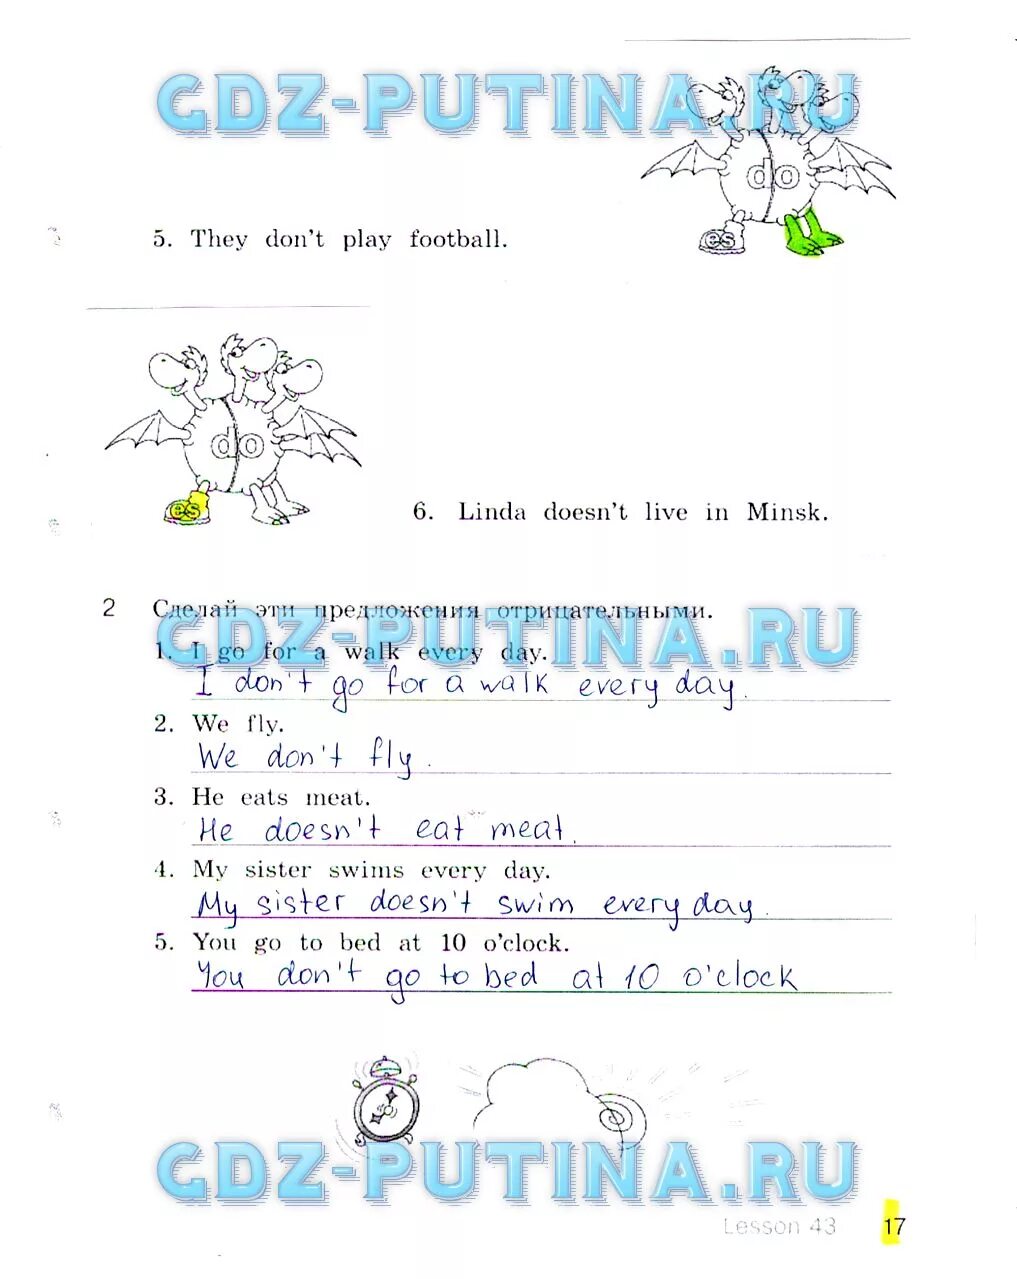 GDZ-PUTINA.RU
do
es
5. They don't play football.
do
es
6. Linda doesn't live in Minsk.
2 Сделай эти предложения отрицательными.
GDZ-PUTINA.RU
1. I go for a walk every day.
I don't go for a walk every day.
2. We fly.
We don't fly.
3. He eats meat.
He doesn't eat meat.
4. My sister swims every day.
My sister doesn't swim every day.
5. You go to bed at 10 o'clock.
You don't go to bed at 10 o'clock
GDZ-PUTINA.RU
Lesson 43 17